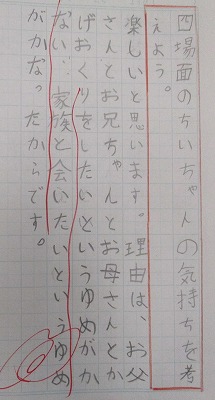 四場面のちいちゃんの気持ちを考
えよう。
楽しいと思います。理由は、お父
さんとお兄ちゃんとお母さんとか
げおくりをしたいというゆめがか
ない、家族と会いたいというゆめ
がかなったからです。